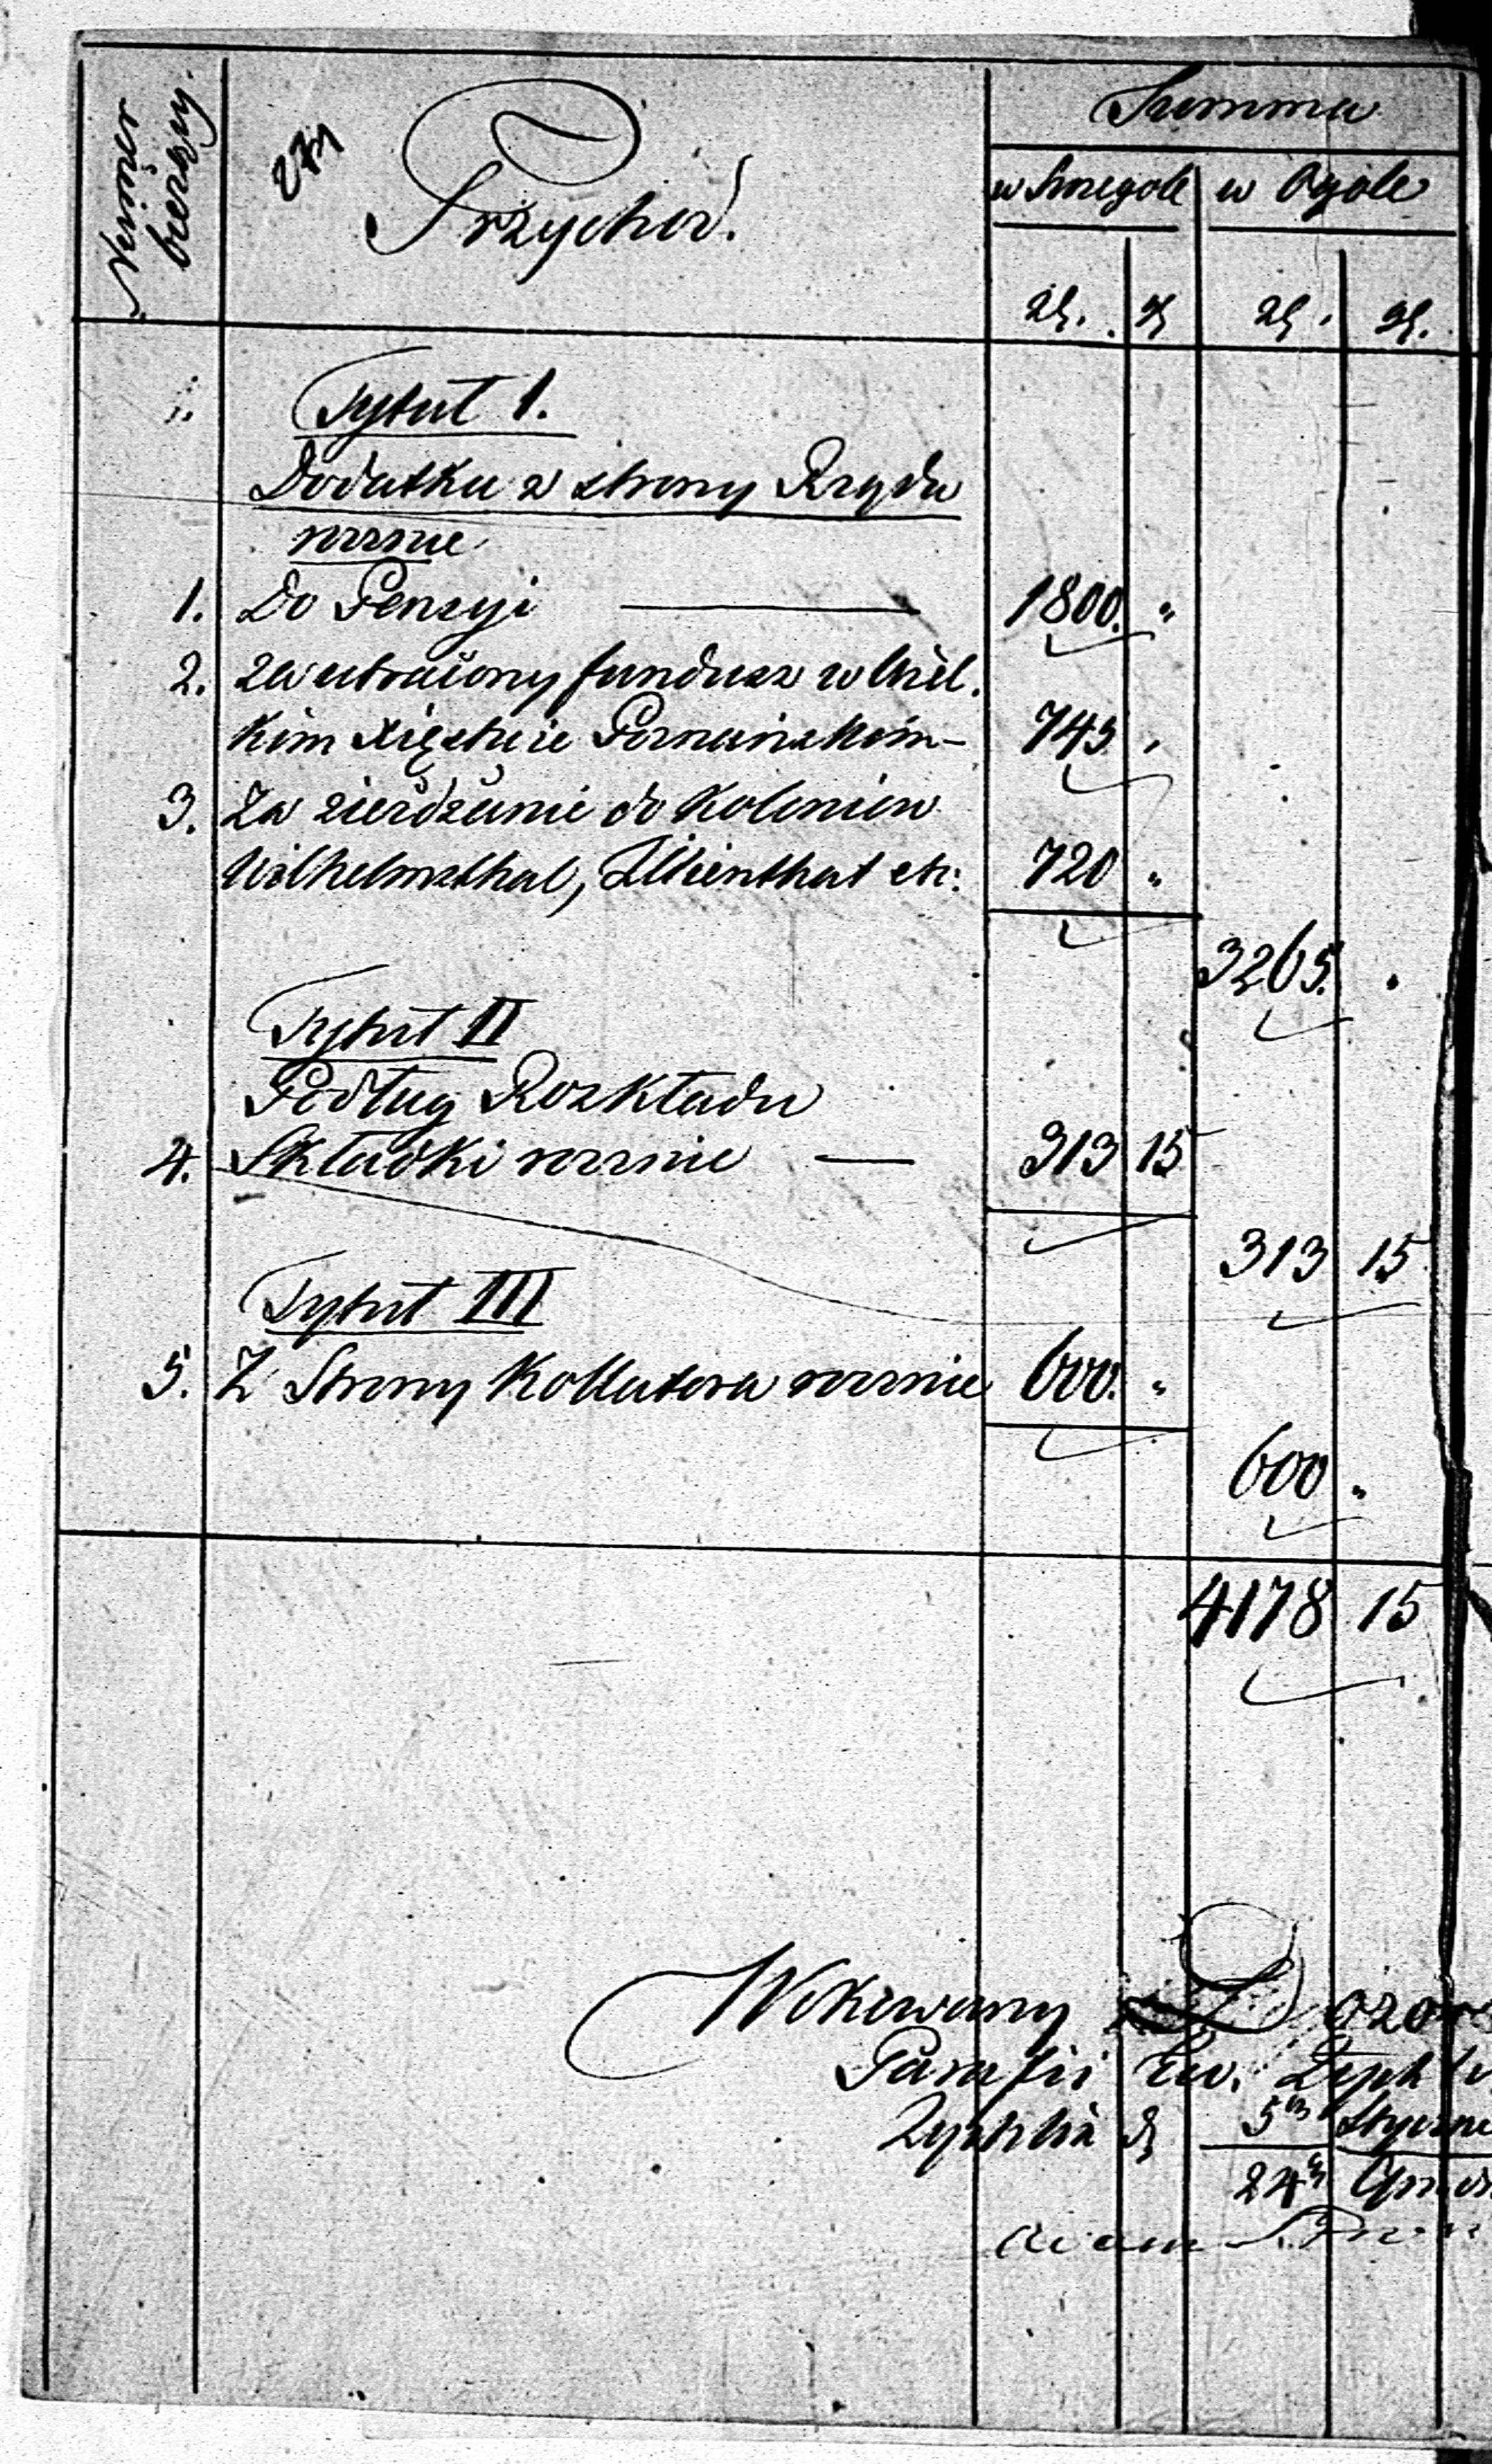 Numer bieżący.
Przychod.
Summa
w Szczegole w Ogole
zł. gr zł. gr.
Tytuł 1.
Dodatku z strony Rządu
rocznie
1. Do Pensyi 1800. "
2. za utracony fundusz w Wiel.
kim Xięstwie Poznańskim 745 "
3. Za zieżdżanie do Koloniów
Wilhelmsthal, Lilienthal etc: 720 "
3265. "
Tytuł II
Podług Rozkładu
4. Składki rocznie 313 15
313 15
Tytuł III
5. Z Strony Kollatora rocznie 600. "
600 "
4178 15
Dozor
Parafii Ew.
5 Stycznia
24